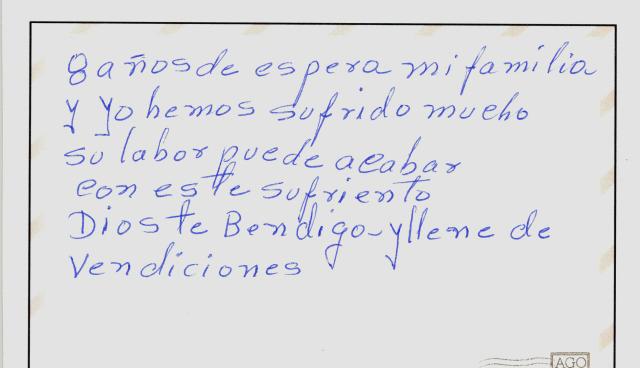 8 años de espera mi familia
y yo hemos sufrido mucho
su labor puede acabar
con este sufriento
Dios te Bendigo y llene de
Vendiciones
AGO